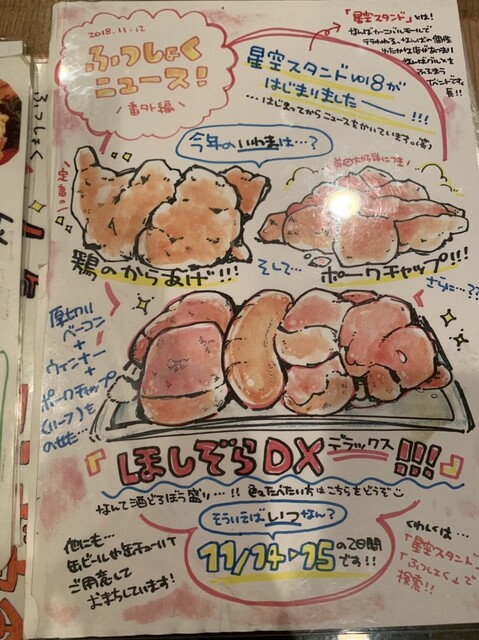 2018.11.12
ふつしょく
ニュース!
番外編
「星空スタンド」とは!
星空スタンド2018が
はじまりました━━!!!
…はじまってからニュースをかいています。(笑)
今年のいわきは…?
定番の!
鶏のからあげ!!!
そして…
ポークチャップ!!!
さらに…??
厚切り
ベーコン
+
ウィンナー
+
ポークチャップ
(ハーフ)を
のせた…
『ほしぞらDX デラックス!!!』
なんて酒どろぼう盛り…!! 色々たべたい方はこちらをどうぞ
そういえばいつなん?
11/14▶15の2日間
です!!
他にも…
缶ビールや缶チューハイ
ご用意して
おまちしています!
くわしくは…
「星空スタンド
ふつしょく」で
検索!!
ふつしょく